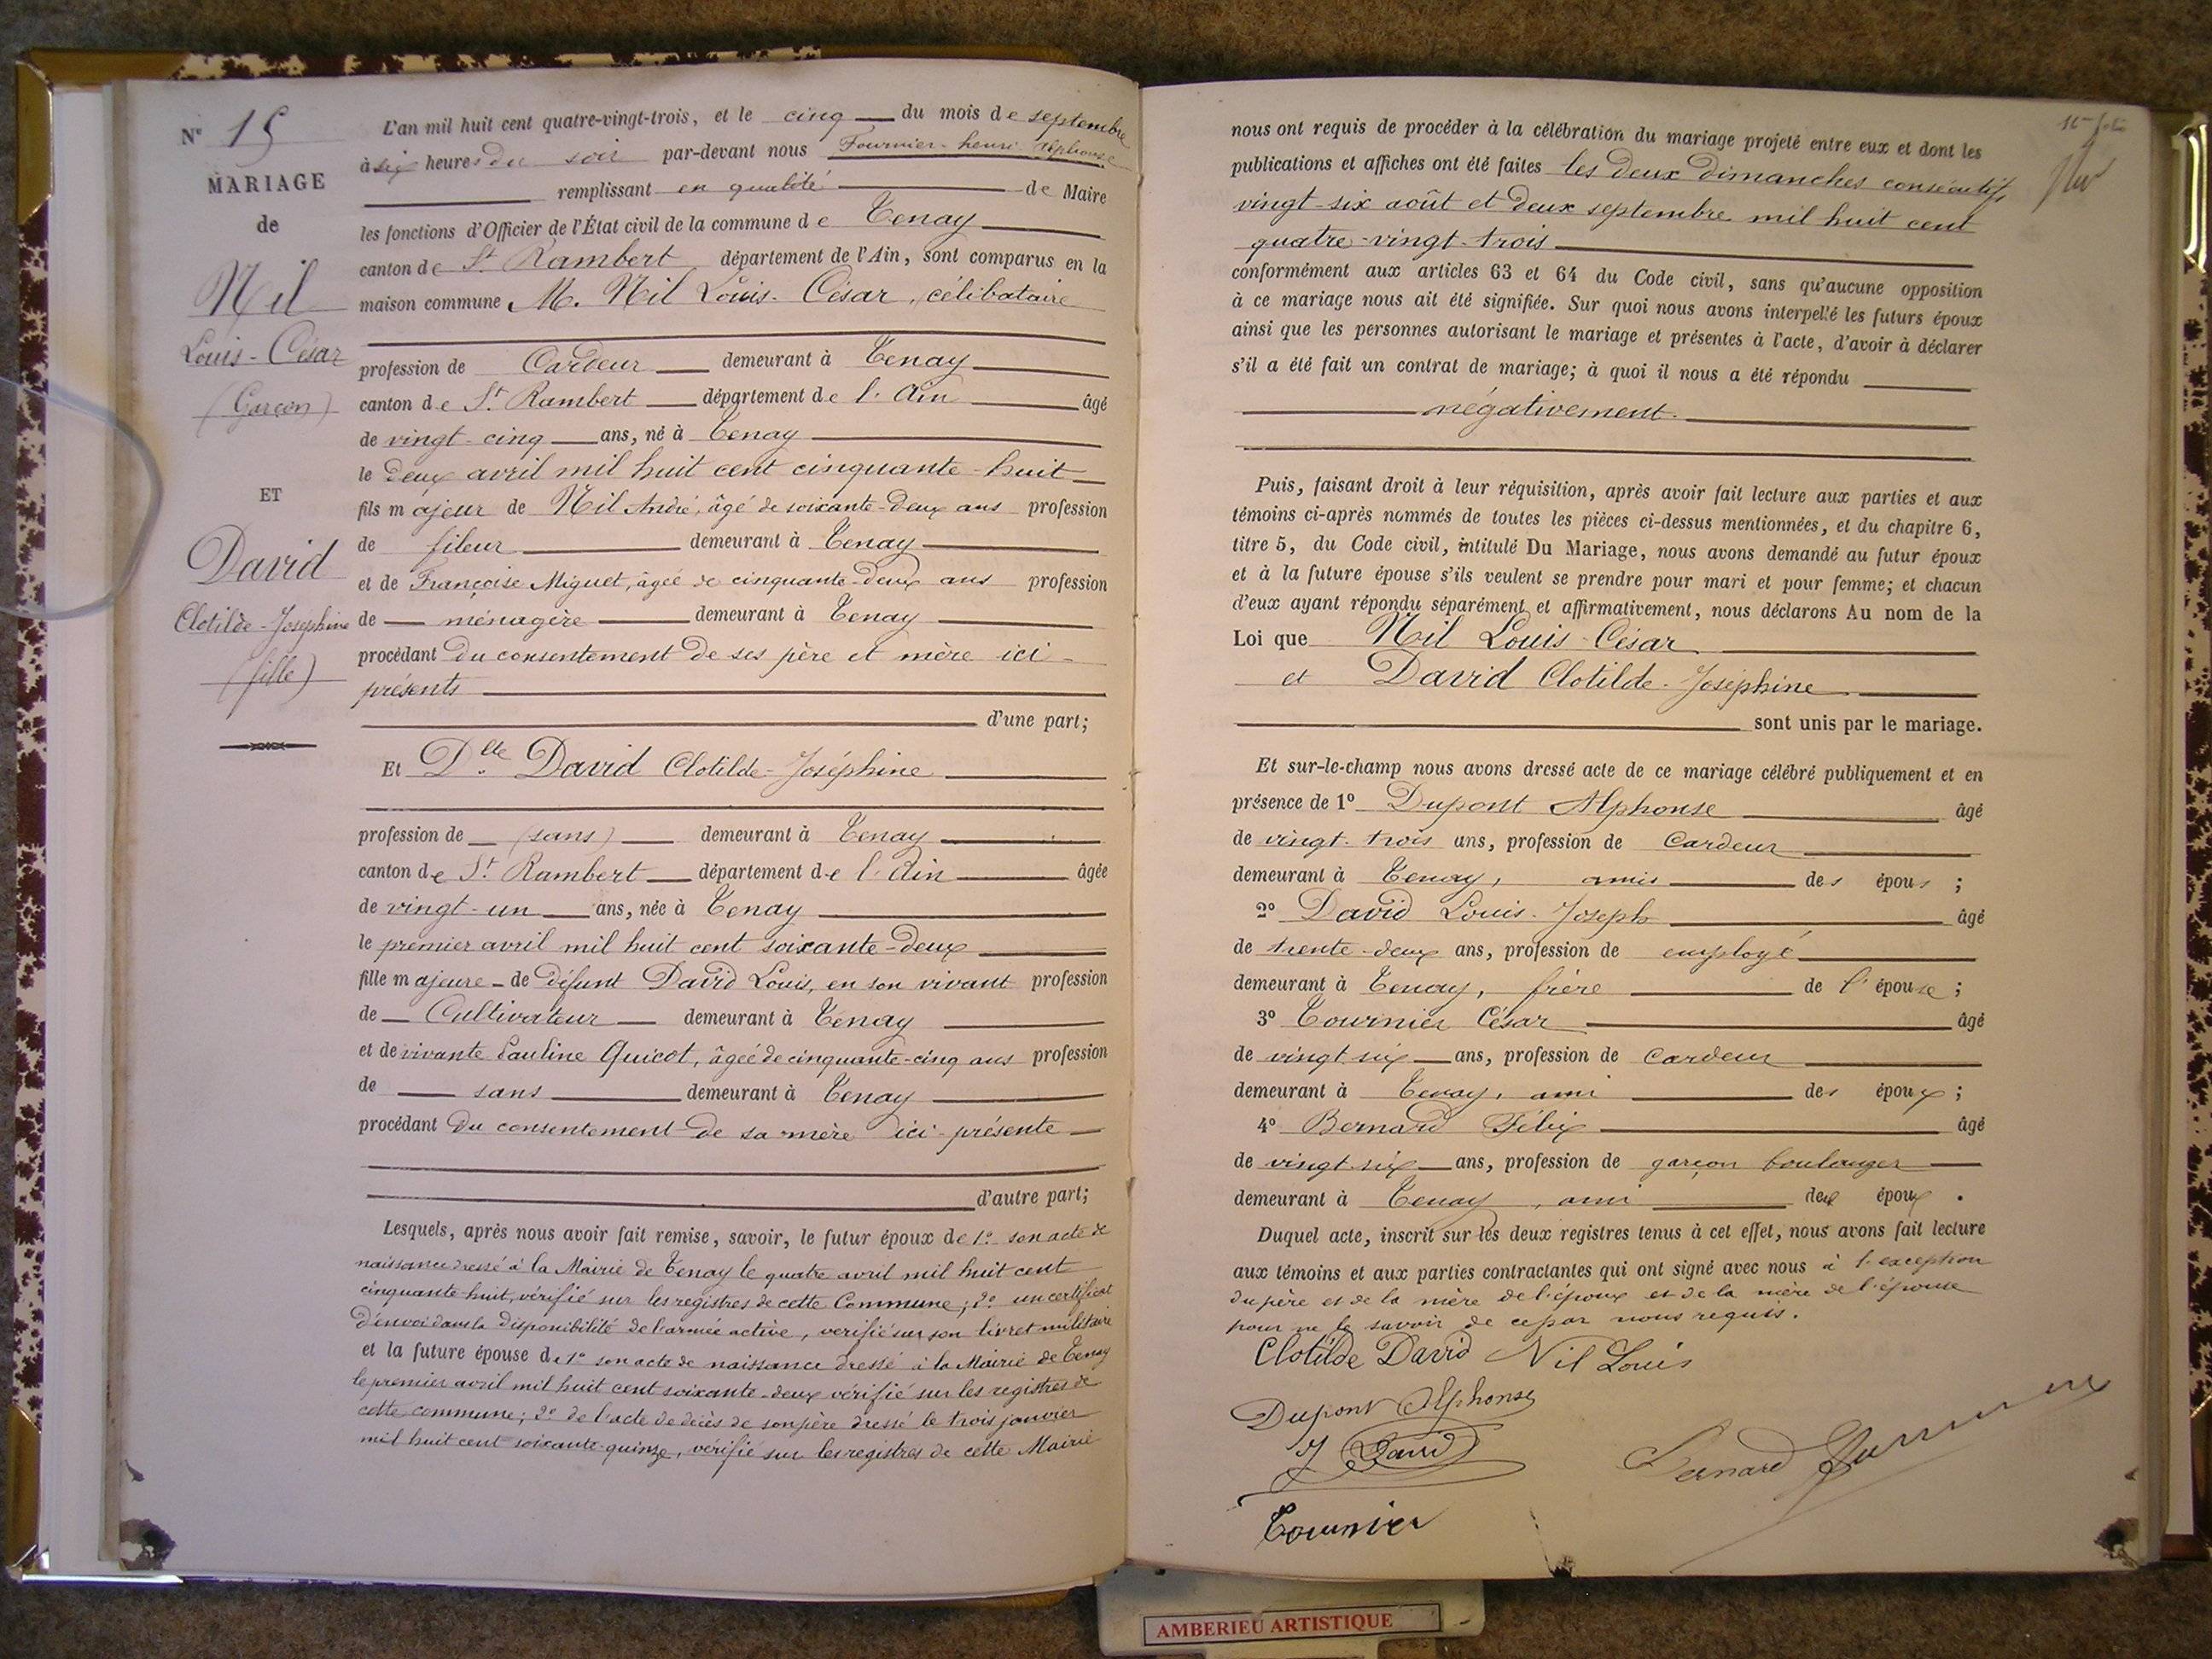 N° 15
MARIAGE
de
Nil
Louis-César
(Garçon)
ET
David
Clotilde-Joséphine
(fille)
L'an mil huit cent quatre-vingt-trois, et le cinq du mois de septembre
à six heures du soir par-devant nous Fournier henri Alphonse
remplissant en qualité de Maire
les fonctions d'Officier de l'État civil de la commune de Tenay
canton de St Rambert département de l'Ain, sont comparus en la
maison commune M. Nil Louis-César, célibataire
profession de Cardeur demeurant à Tenay
canton de St Rambert département de l'Ain âgé
de vingt-cinq ans, né à Tenay
le deux avril mil huit cent cinquante-huit
fils majeur de Nil André, âgé de soixante-deux ans profession
de fileur demeurant à Tenay
et de Françoise Miguet, âgée de cinquante-deux ans profession
de ménagère demeurant à Tenay
procédant du consentement de ses père et mère ici-
présents
d'une part;
Et Dlle David Clotilde-Joséphine
profession de (sans) demeurant à Tenay
canton de St Rambert département de l'Ain âgée
de vingt-un ans, née à Tenay
le premier avril mil huit cent soixante-deux
fille majeure de défunt David Louis, en son vivant profession
de Cultivateur demeurant à Tenay
et de vivante Pauline Quicot, âgée de cinquante-cinq ans profession
de sans demeurant à Tenay
procédant du consentement de sa mère ici-présente
d'autre part;
Lesquels, après nous avoir fait remise, savoir, le futur époux de 1° son acte de
naissance dressé à la Mairie de Tenay le quatre avril mil huit cent
cinquante-huit, vérifié sur les registres de cette Commune; 2° un certificat
d'envoi dans la disponibilité de l'armée active, vérifié sur son livret militaire
et la future épouse de 1° son acte de naissance dressé à la Mairie de Tenay
le premier avril mil huit cent soixante-deux vérifié sur les registres de
cette commune; 2° de l'acte de décès de son père dressé le trois janvier
mil huit cent soixante-quinze, vérifié sur les registres de cette Mairie
nous ont requis de procéder à la célébration du mariage projeté entre eux et dont les
publications et affiches ont été faites les deux dimanches consécutifs
vingt-six août et deux septembre mil huit cent
quatre-vingt-trois
conformément aux articles 63 et 64 du Code civil, sans qu'aucune opposition
à ce mariage nous ait été signifiée. Sur quoi nous avons interpellé les futurs époux
ainsi que les personnes autorisant le mariage et présentes à l'acte, d'avoir à déclarer
s'il a été fait un contrat de mariage; à quoi il nous a été répondu
négativement.
Puis, faisant droit à leur réquisition, après avoir fait lecture aux parties et aux
témoins ci-après nommés de toutes les pièces ci-dessus mentionnées, et du chapitre 6,
titre 5, du Code civil, intitulé Du Mariage, nous avons demandé au futur époux
et à la future épouse s'ils veulent se prendre pour mari et pour femme; et chacun
d'eux ayant répondu séparément et affirmativement, nous déclarons Au nom de la
Loi que Nil Louis-César
et David Clotilde-Joséphine
sont unis par le mariage.
Et sur-le-champ nous avons dressé acte de ce mariage célébré publiquement et en
présence de 1° Dupont Alphonse âgé
de vingt-trois ans, profession de Cardeur
demeurant à Tenay, amis des épous ;
2° David Louis-Joseph âgé
de trente-deux ans, profession de employé
demeurant à Tenay, frère de l'épouse ;
3° Tournier César âgé
de vingt six ans, profession de Cardeur
demeurant à Tenay, ami des époux ;
4° Bernard Félix âgé
de vingt six ans, profession de garçon boulanger
demeurant à Tenay, ami des époux .
Duquel acte, inscrit sur les deux registres tenus à cet effet, nous avons fait lecture
aux témoins et aux parties contractantes qui ont signé avec nous à l'exception
du père et de la mère de l'époux et de la mère de l'épouse
pour ne le savoir de ce par nous requis.
Clotilde David Nil Louis
Dupont Alphonse
J David
Bernard
Tournier
AMBERIEU ARTISTIQUE